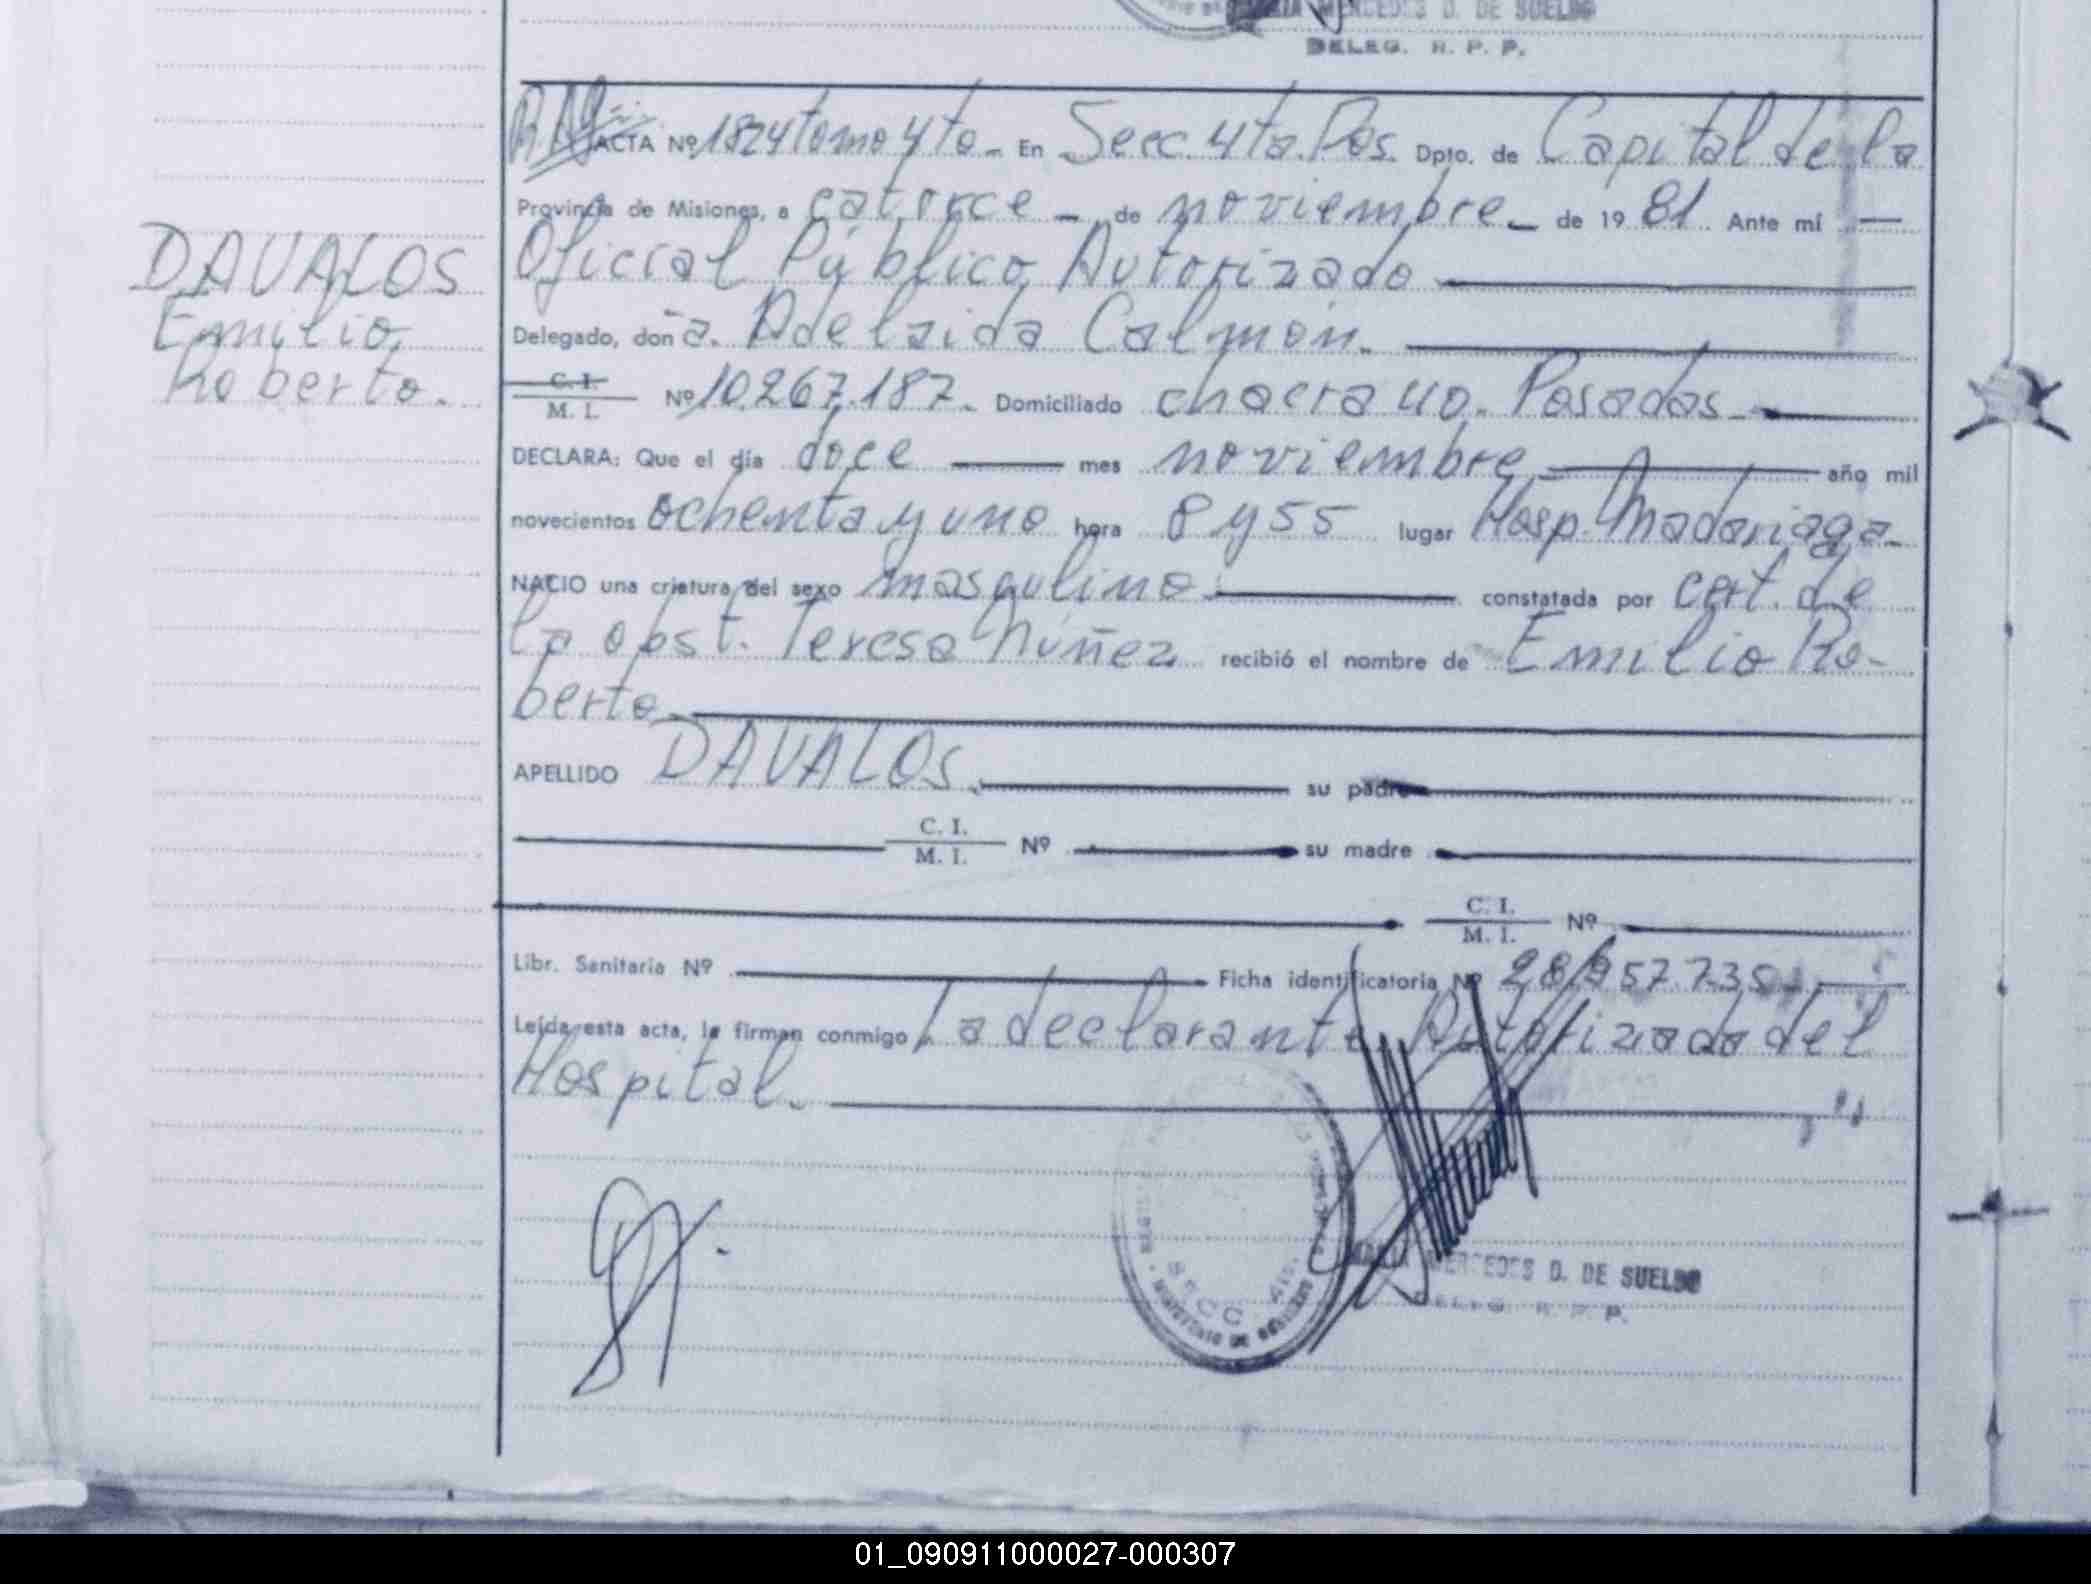 MERCEDES D. DE SUELDO
DELEG. R. P. P.
ACTA Nº 1824 tomo 4to. En Secc. 4ta. Pos. Dpto. de Capital de la
Provincia de Misiones, a catorce de noviembre de 19 81. Ante mí
Oficial Público Autorizado
Delegado, doña. Adelaida Calmón.
C. I.
M. I. Nº 10.267.187. Domiciliado chacra 40. Posadas.
DAVALOS
Emilio
Roberto.
DECLARA: Que el día doce mes noviembre año mil
novecientos ochenta y uno hora 8 y 55 lugar Hosp. Madariaga
NACIO una criatura del sexo masculino constatada por cert. de
la obst. Teresa Núñez recibió el nombre de Emilio Ro-
berto
APELLIDO DAVALOS. su padre
C. I.
M. I. Nº su madre
C. I.
M. I. Nº
Libr. Sanitaria Nº Ficha identificatoria Nº 28.957.735
Leída esta acta, la firman conmigo La declarante Autorizada del
Hospital.
SECC. 4ta.
MERCEDES D. DE SUELDO
DELEG. R. P. P.
01_090911000027-000307